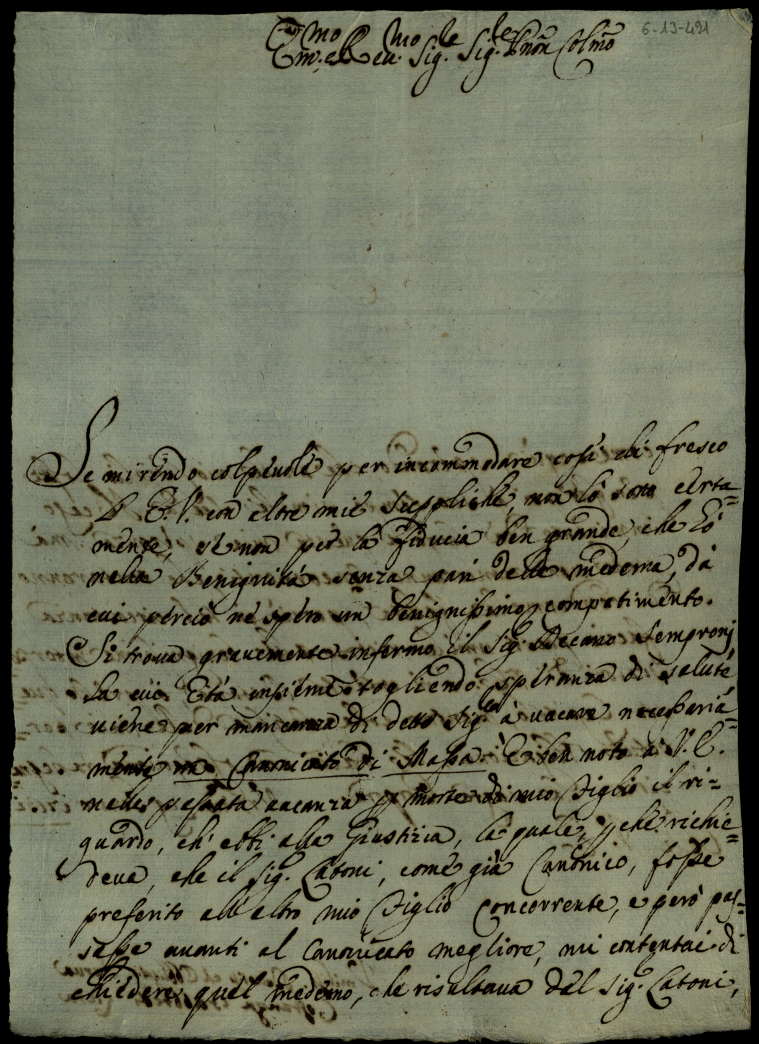 6-13-491
Em.mo e Rev.mo Sig.re Sig.re P.ron Col.mo
Se mi rendo colpevole per incommodare così di fresco
L' E. V. con altre mie Suppliche, non lo sono certa=
mente, se non per la fiducia ben grande, che hò
nella Benignità senza pari della medema, dà
cui perciò ne spero un benignissimo compatimento.
Si trova gravemente infermo il Sig. Decano Sempronj
la cui Età insieme togliendo speranza di salute
viene per mancanza di detto Sig.re à vacare necessaria=
mente un Canonicato di Massa. È ben noto à V. E.
nella passata vacanza p morte di mio Figlio il ri=
guardo, ch' ebbi alla Giustizia, la quale, p che richie=
deva, che il Sig. Catoni, come già Canonico, fosse
preferito all' altro mio Figlio Concorrente, e però pas=
sasse avanti al Canonicato megliore, mi contentai di
chiedere quel medemo, che risultava dal Sig. Catoni,